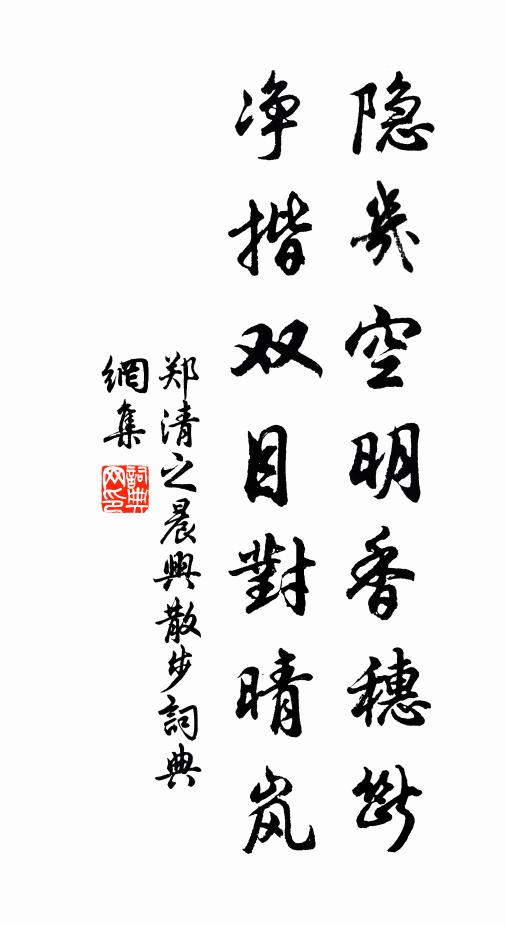 隐几空明香穗断
净揩双目對晴岚
郑清之晨興散步詞典
網集
詞典网印